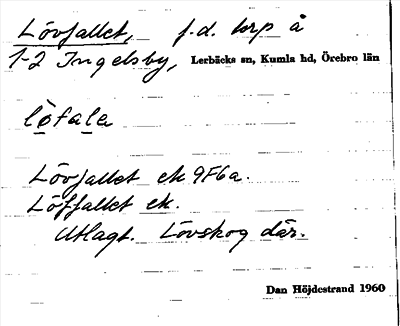 Lövfallet, f.d. torp å
1-2 Ingelsby, Lerbäcks sn, Kumla hd, Örebro län
lö̀fala
Lövfallet ek 9F6a.
Löffallet ek.
Utlagt. Lövskog där.
Dan Höjdestrand 1960